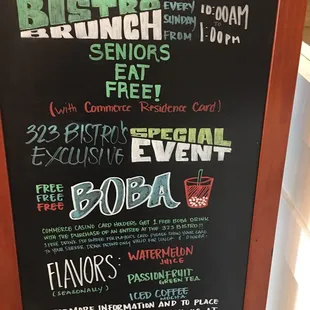 BISTRO
BRUNCH
EVERY
SUNDAY
FROM
10:00AM
TO
1:00PM
SENIORS
EAT
FREE!
(with Commerce Residence Card)
323 BISTRO'S
EXCLUSIVE
SPECIAL
EVENT
FREE
FREE
FREE
BOBA
COMMERCE CASINO CARD HOLDERS GET 1 FREE BOBA DRINK
WITH THE PURCHASE OF AN ENTREE AT THE 323 BISTRO!!
FLAVORS:
(SEASONALLY)
WATERMELON
JUICE
PASSIONFRUIT
GREEN TEA
ICED COFFEE
MORE INFORMATION AND TO PLACE